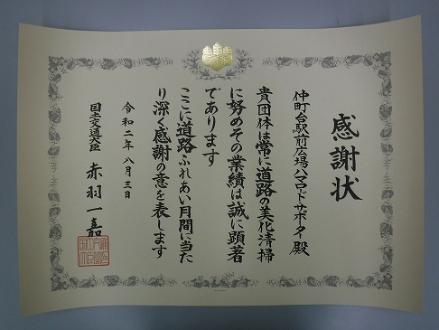 感謝状
仲町台駅前広場ハマロードサポーター殿
貴団体は常に道路の美化清掃
に努めその業績は誠に顕著
であります
ここに道路ふれあい月間に当た
り深く感謝の意を表します
令和二年八月三日
国土交通大臣 赤羽一嘉